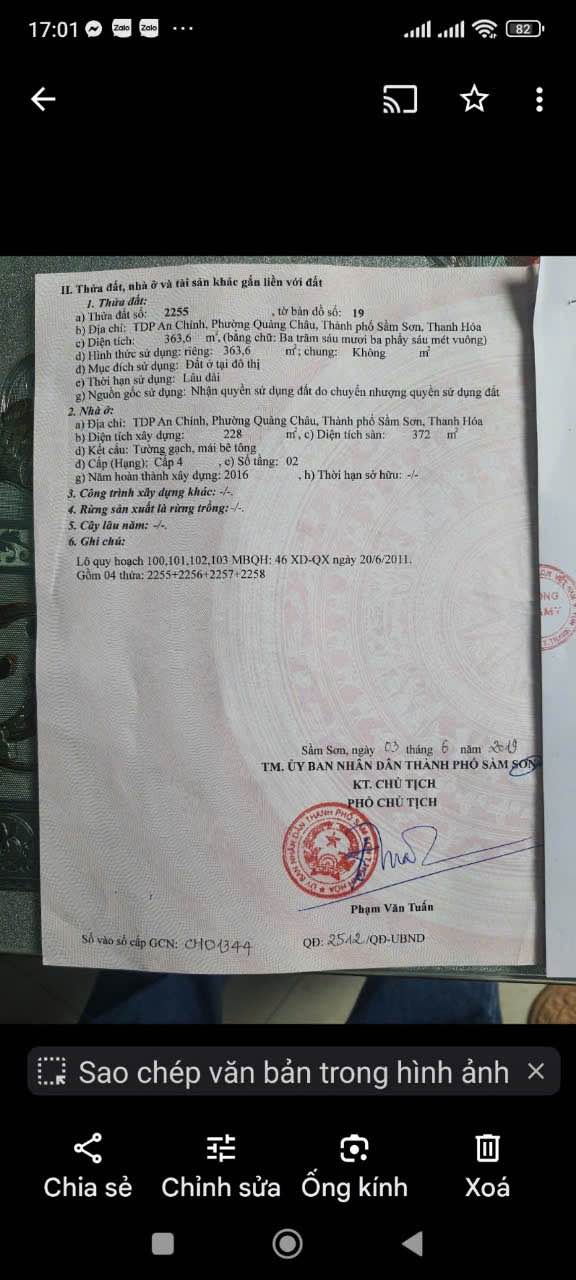 17:01
Zalo
Zalo
82
II. Thửa đất, nhà ở và tài sản khác gắn liền với đất
1. Thửa đất:
a) Thửa đất số: 2255 , tờ bản đồ số: 19
b) Địa chỉ: TDP An Chính, Phường Quảng Châu, Thành phố Sầm Sơn, Thanh Hóa
c) Diện tích: 363,6 m², (bằng chữ: Ba trăm sáu mươi ba phẩy sáu mét vuông)
d) Hình thức sử dụng: riêng: 363,6 m²; chung: Không m²
đ) Mục đích sử dụng: Đất ở tại đô thị
e) Thời hạn sử dụng: Lâu dài
g) Nguồn gốc sử dụng: Nhận quyền sử dụng đất do chuyển nhượng quyền sử dụng đất
2. Nhà ở:
a) Địa chỉ: TDP An Chính, Phường Quảng Châu, Thành phố Sầm Sơn, Thanh Hóa
b) Diện tích xây dựng: 228 m², c) Diện tích sàn: 372 m²
d) Kết cấu: Tường gạch, mái bê tông
đ) Cấp (Hạng): Cấp 4 , e) Số tầng: 02
g) Năm hoàn thành xây dựng: 2016 , h) Thời hạn sở hữu: -/-
3. Công trình xây dựng khác: -/-.
4. Rừng sản xuất là rừng trồng: -/-.
5. Cây lâu năm: -/-.
6. Ghi chú:
Lô quy hoạch 100,101,102,103 MBQH: 46 XD-QX ngày 20/6/2011.
Gồm 04 thửa: 2255+2256+2257+2258
Sầm Sơn, ngày 03 tháng 6 năm 2019
TM. ỦY BAN NHÂN DÂN THÀNH PHỐ SẦM SƠN
KT. CHỦ TỊCH
PHÓ CHỦ TỊCH
Phạm Văn Tuấn
Số vào sổ cấp GCN: CH01344
QĐ: 2512/QĐ-UBND
Sao chép văn bản trong hình ảnh
Chia sẻ
Chỉnh sửa
Ống kính
Xoá